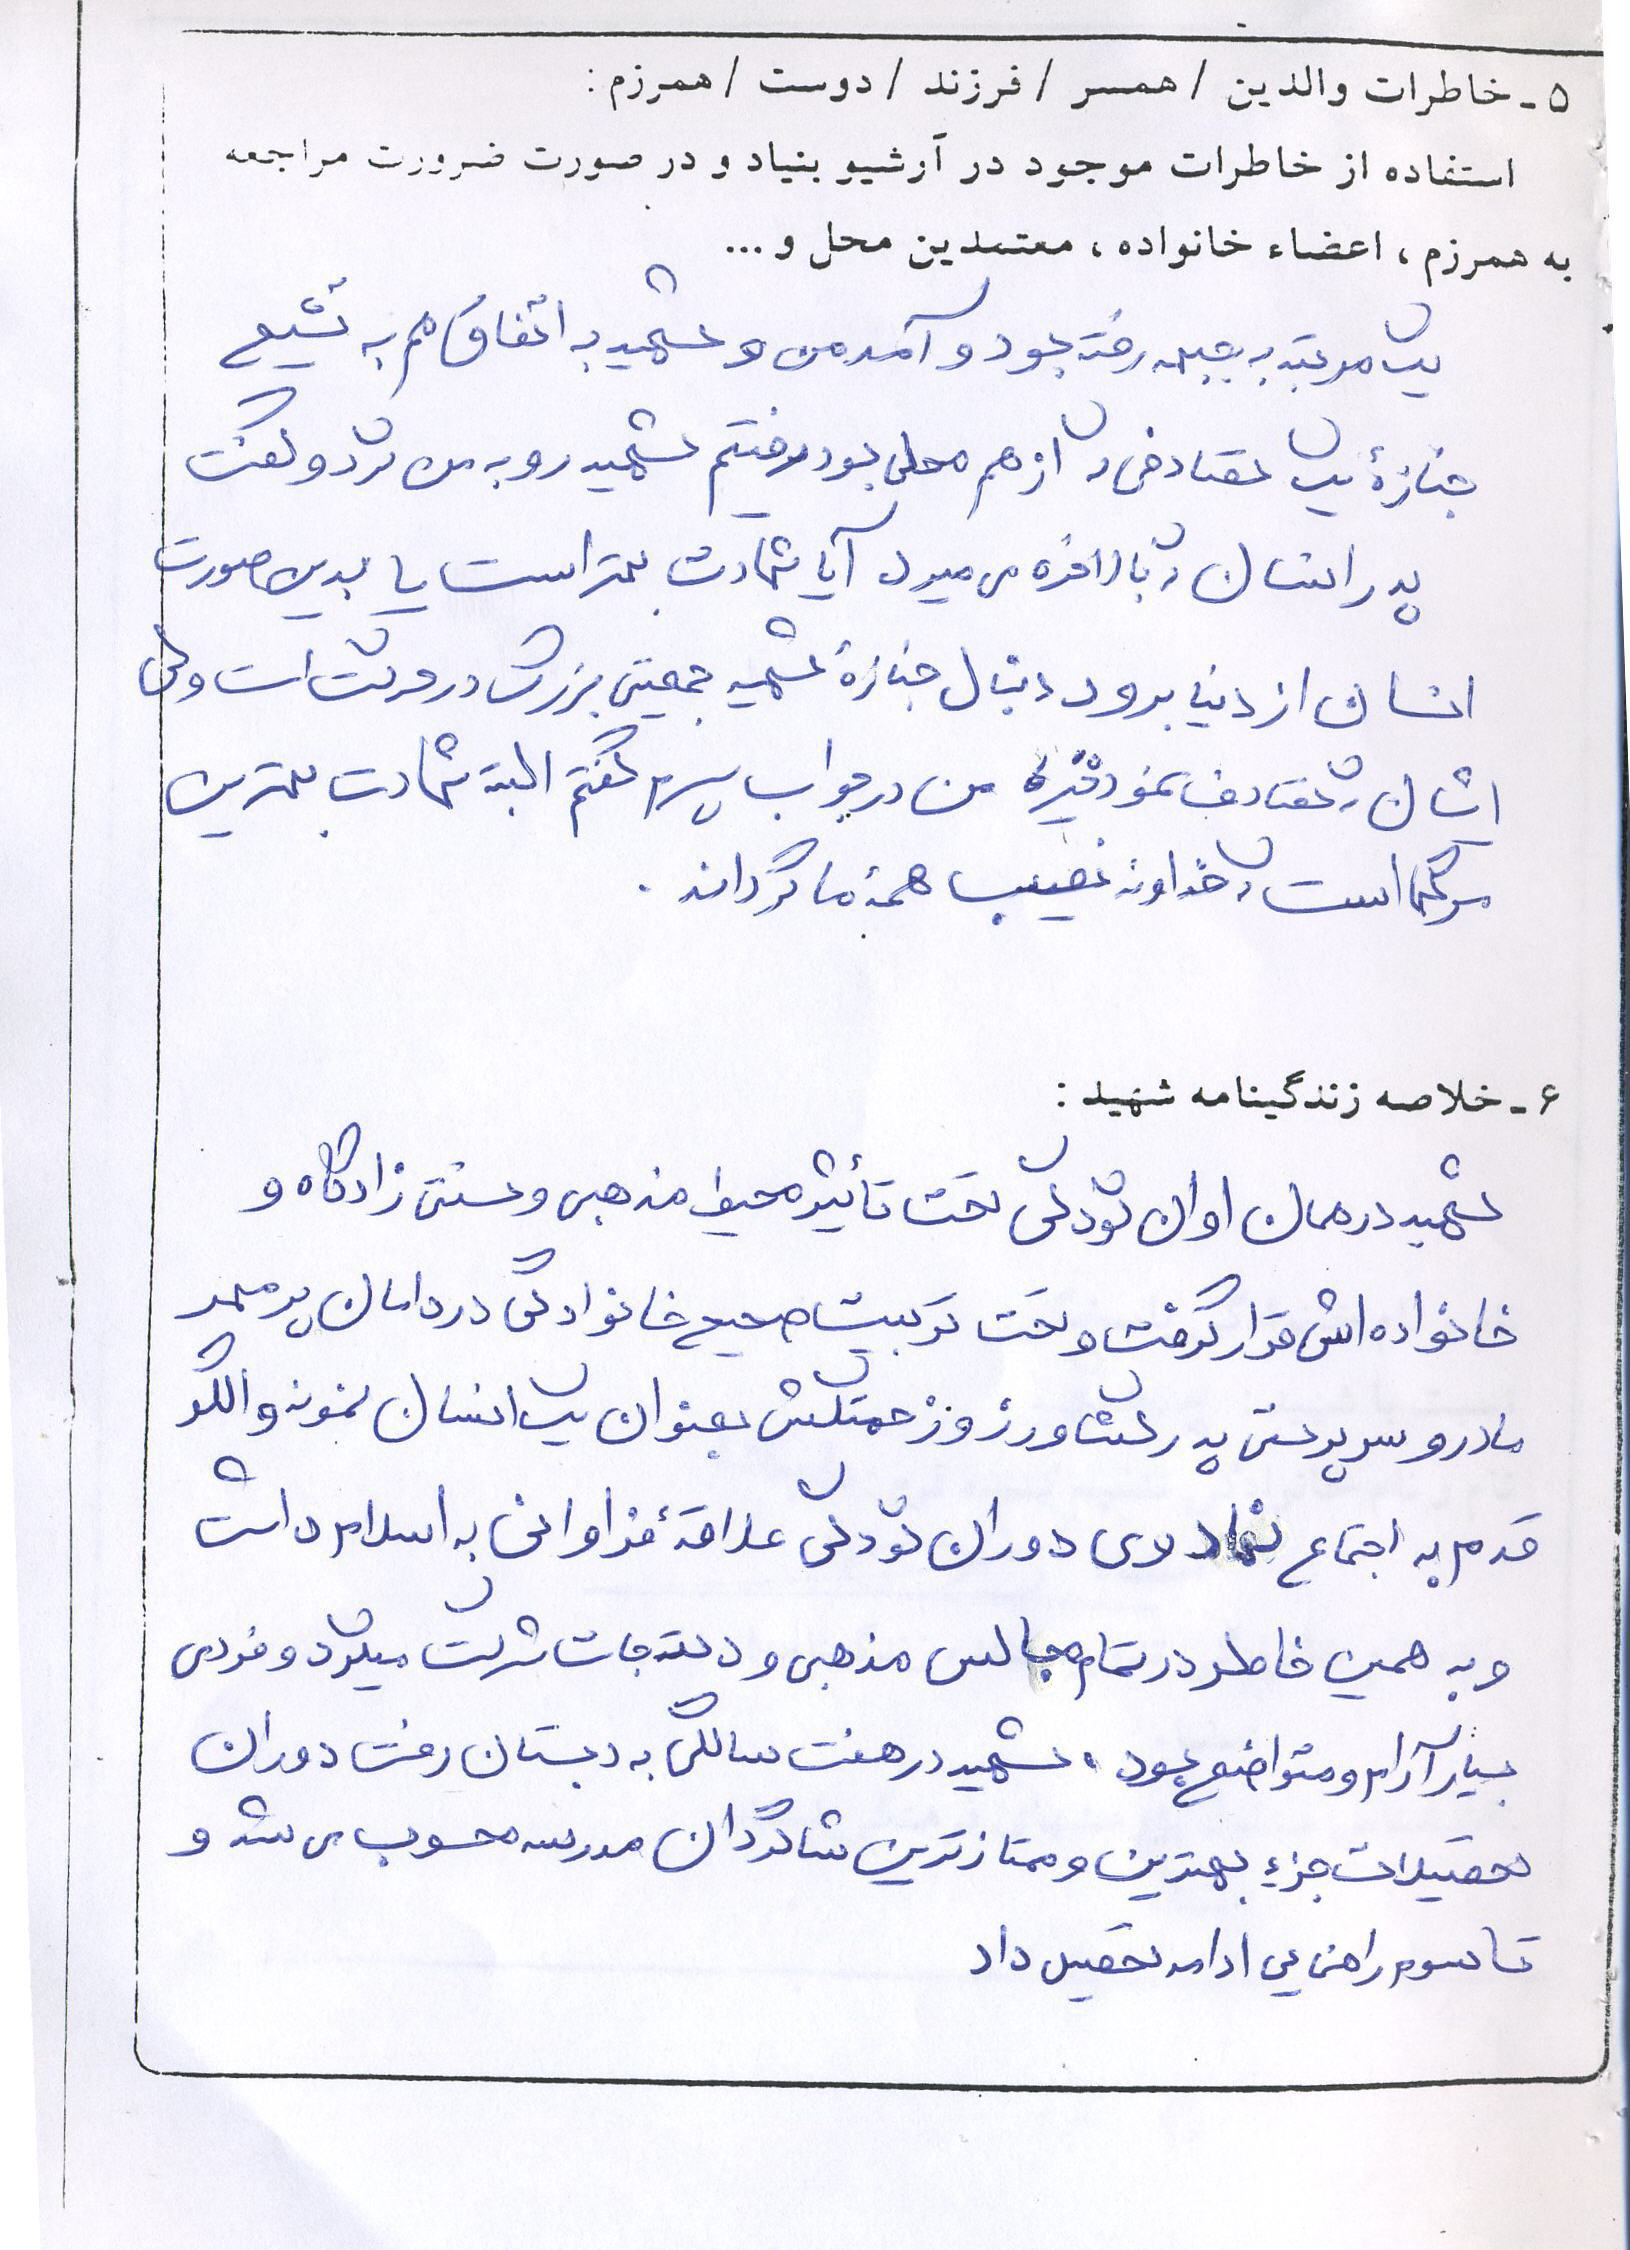 ۵ - خاطرات والدین / همسر / فرزند / دوست / همرزم :
استفاده از خاطرات موجود در آرشیو بنیاد و در صورت ضرورت مراجعه
به همرزم ، اعضاء خانواده ، معتمدین محل و ...
یک مرتبه به جبهه رفته بود و آمد من و شهید به اتفاق هم به تشیع
جنازهٔ یک تصادفی که از هم محلی بود رفتیم شهید رو به من کرد و گفت
پدر انسان که بالاخره می میرد آیا شهادت بهتر است یا بدین صورت
انسان از دنیا برود دنبال جنازهٔ شهید جمعیتی بزرگ در حرکت است ولی
ایشان که تصادف نمود من در جواب پسرم گفتم البته شهادت بهترین
مرگها است که خداوند نصیب همهٔ ما گرداند .
۶ - خلاصه زندگینامه شهید :
شهید در همان اوان کودکی تحت تأثیر محیط مذهبی و سنتی زادگاه و
خانواده اش قرار گرفت و تحت تربیت صحیح خانوادگی در دامان پر مهر
مادر و سرپرستی پدر کشاورز و زحمتکش بعنوان یک انسان نمونه و الگو
قدم به اجتماع نهاد وی دوران کودکی علاقهٔ فراوانی به اسلام داشت
و به همین خاطر در تمام مجالس مذهبی و دسته جات شرکت میکرد و فردی
بسیار آرام و متواضع بود . شهید در هفت سالگی به دبستان رفت دوران
تحصیلات جزء بهترین و ممتازترین شاگردان مدرسه محسوب می شد و
تا سوم راهنمایی ادامه تحصیل داد